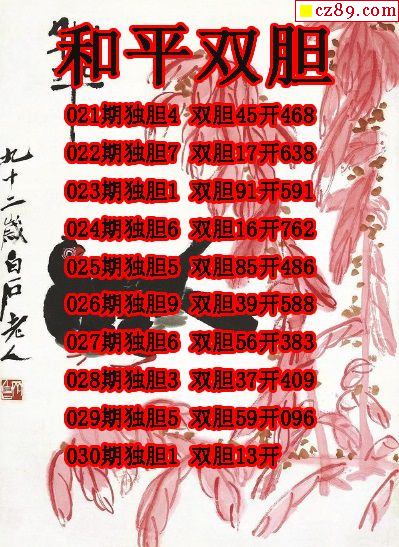 cz89.com
和平双胆
021期独胆4 双胆45开468
022期独胆7 双胆17开638
023期独胆1 双胆91开591
024期独胆6 双胆16开762
025期独胆5 双胆85开486
026期独胆9 双胆39开588
027期独胆6 双胆56开383
028期独胆3 双胆37开409
029期独胆5 双胆59开096
030期独胆1 双胆13开
九十二歲白石老人